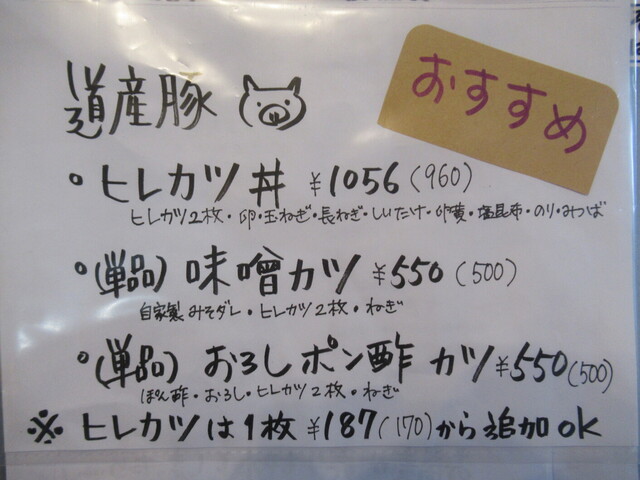 おすすめ
道産豚
・ヒレカツ丼 ¥1056(960)
ヒレカツ2枚・卵・玉ねぎ・長ねぎ・しいたけ・卵黄・塩昆布・のり・みつば
・(単品) 味噌カツ ¥550(500)
自家製みそダレ・ヒレカツ2枚・ねぎ
・(単品) おろしポン酢カツ ¥550(500)
ぽん酢・おろし・ヒレカツ2枚・ねぎ
※ ヒレカツは1枚 ¥187(170)から追加ok